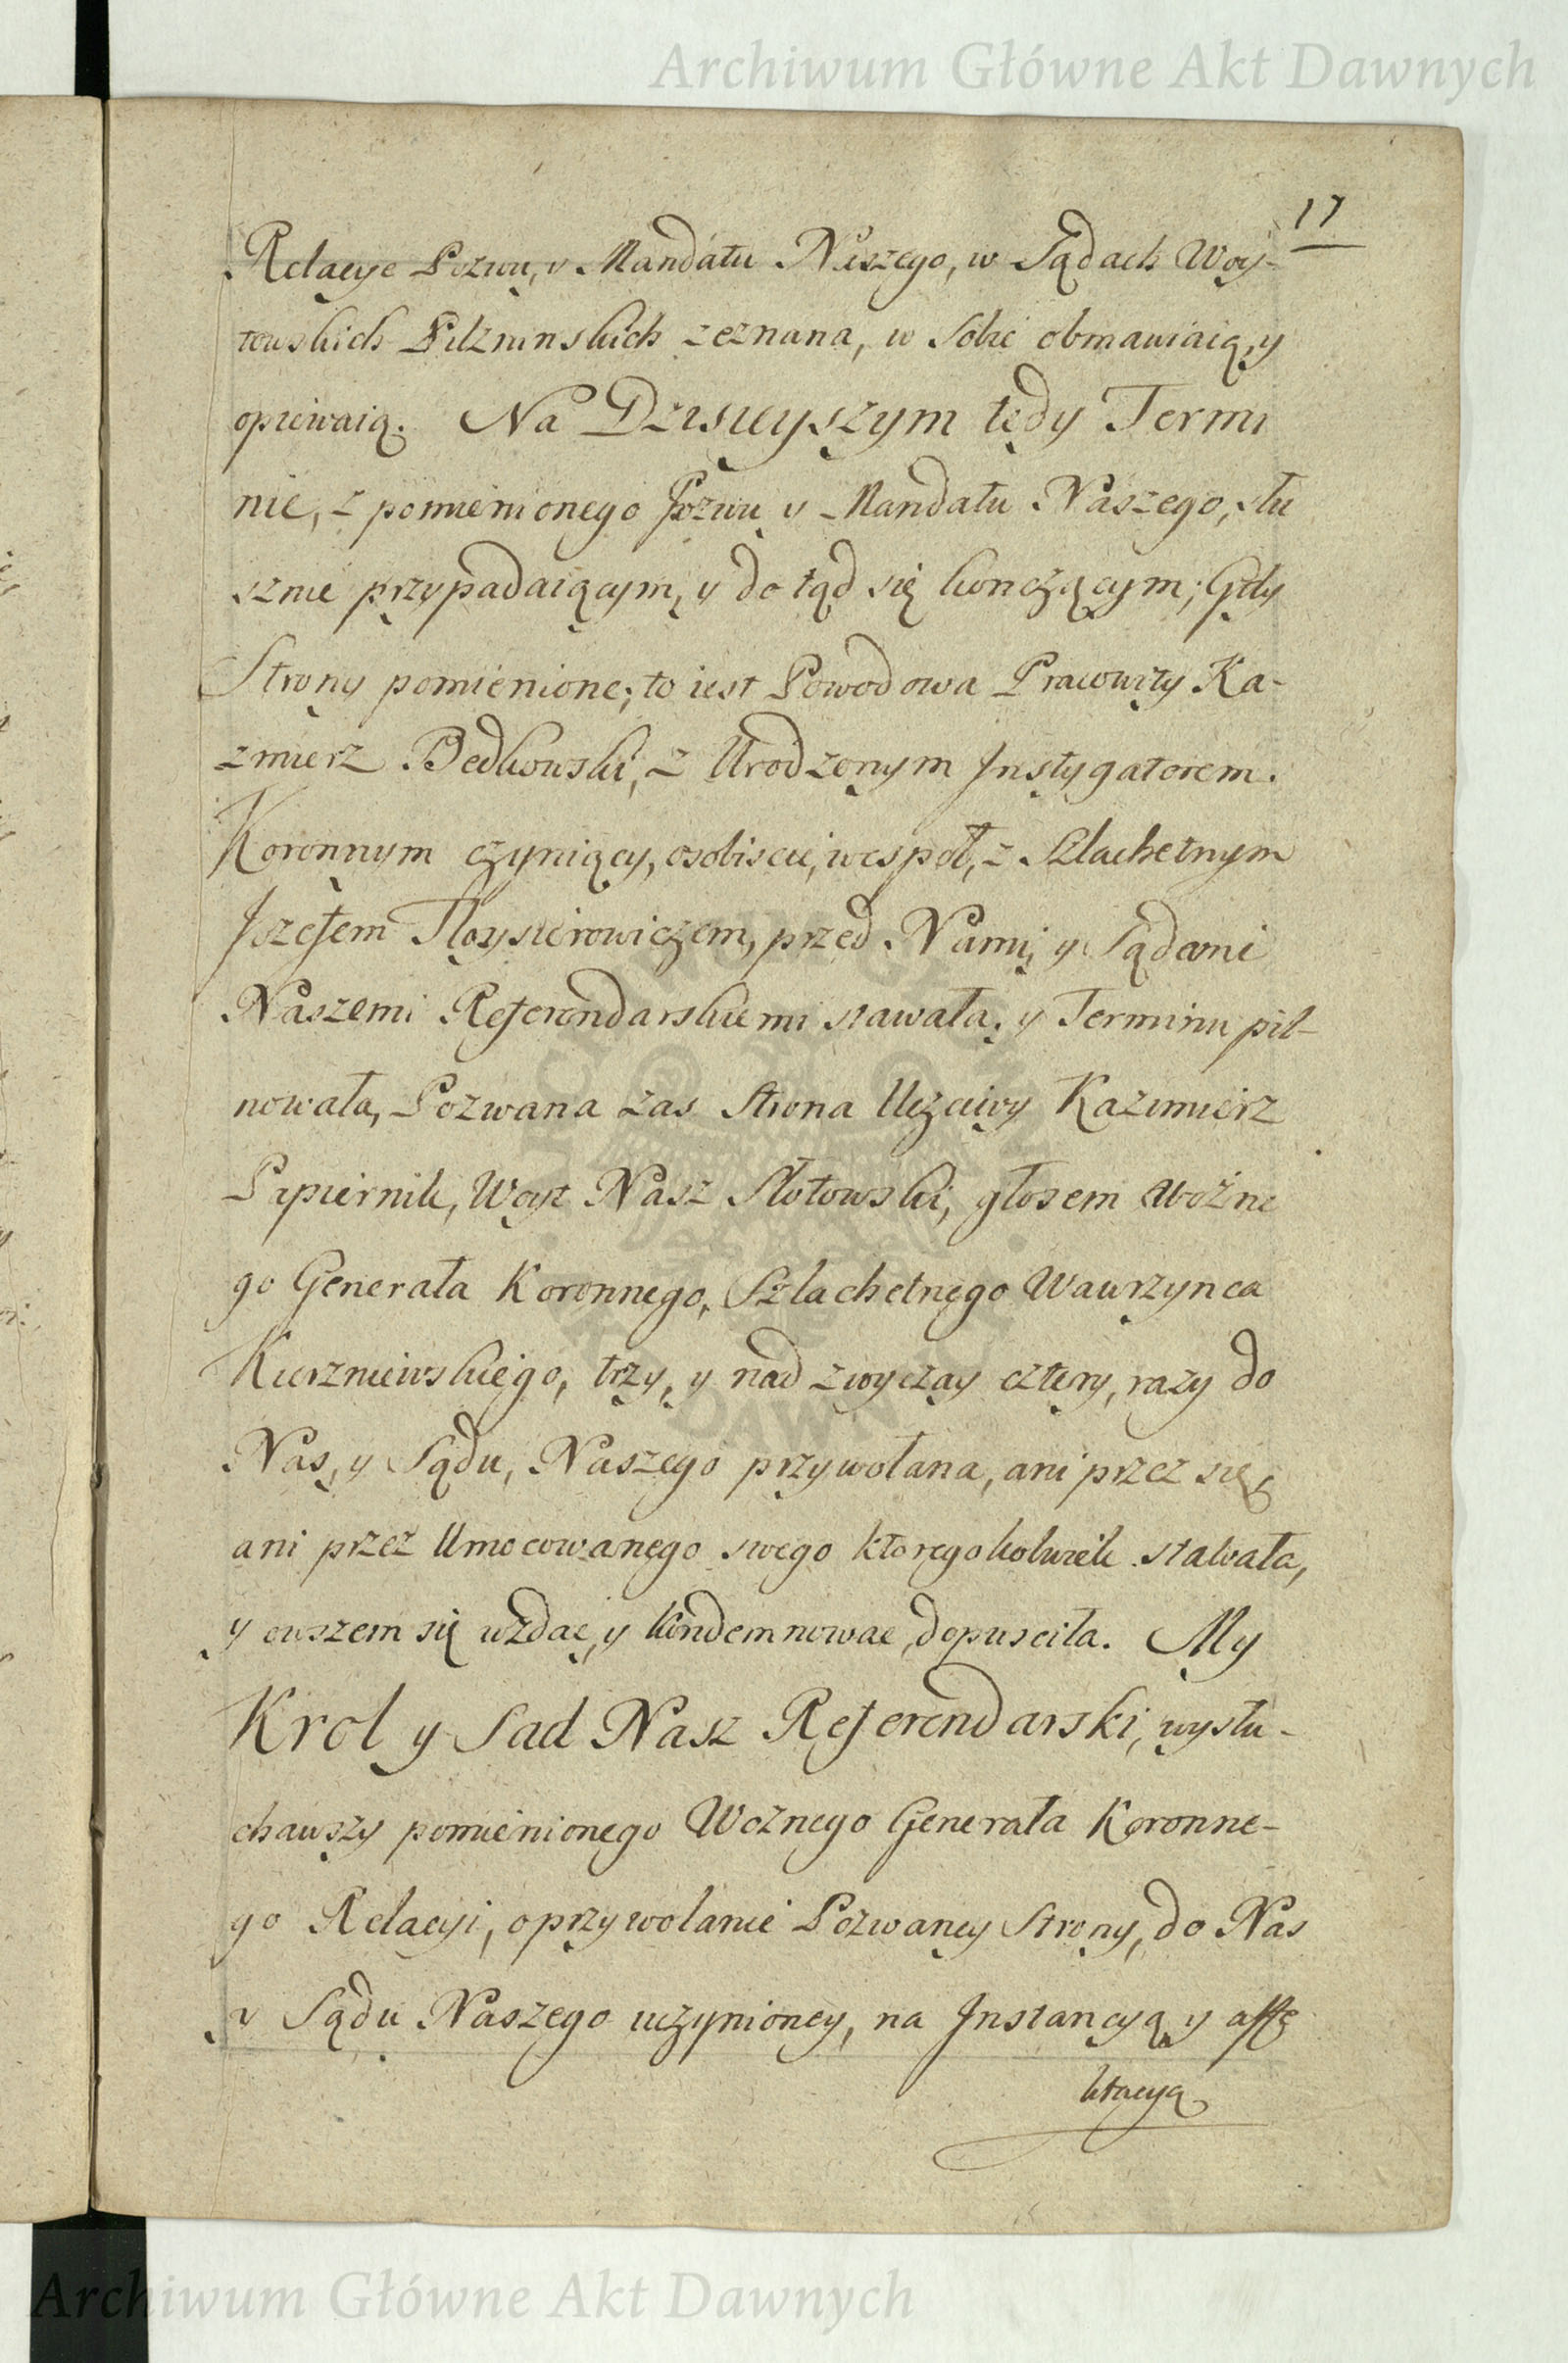 Archiwum Główne Akt Dawnych
17
Relacye Pozwu, y Mandatu Naszego, w Sądach Woy-
towskich Pilzninskich zeznana, w Sobie obmawiaią, y
opiewaią. Na Dzisieyszym tedy Termi
nie, z pomienionego Pozwu y Mandatu Naszego, słu
sznie przypadaiącym, y do tąd się konczącym; Gdy
Strony pomienione; to iest Powodowa Pracowity Ka-
zmierz Bedkowski, z Urodzonym Instygatorem
Koronnym czyniący, osobiscie, wespoł, z Szlachetnym
Jozefem przed Nami, y Sądami
Naszemi Referendarskiemi stawała, y Terminu pil-
nowała, Pozwana zas Strona Uczciwy Kazimierz
Papiernik, Woyt Nasz Słotowski, głosem Woźne
go Generała Koronnego, Szlachetnego Wawrzynca
trzy, y nad zwyczay cztery, razy do
Nas, y Sądu, Naszego przywołana, ani przez się,
ani przez Umocowanego swego ktoregokolwiek stawała,
y owszem się wzdac, y kondemnowac, dopusciła. My
Krol y Sad Nasz Referendarski, wysłu-
chawszy pomienionego Woznego Generała Koronne-
go Relacyi, o przywolanie Pozwaney Strony, do Nas
y Sądu Naszego uczynioney, na Instancyą, y affe
ktacyą
Archiwum Główne Akt Dawnych